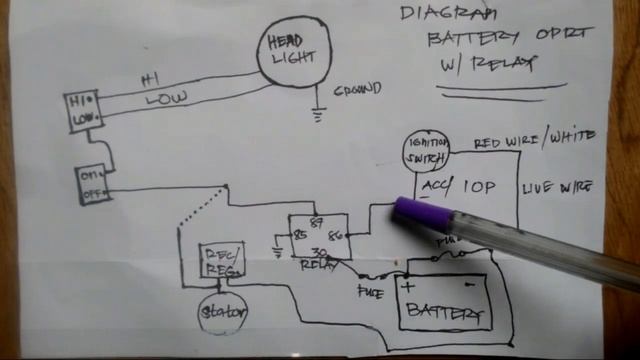 DIAGRAM
BATTERY OPRT
W/ RELAY
HEAD
LIGHT
HI
LOW
GROUND
HI
LOW
ON
OFF
IGNITION
SWITCH
RED WIRE/WHITE
ACC/IOP
LIVE WIRE
87
85
86
30
RELAY
REC/
REG.
FUSE
+ -
BATTERY
Stator